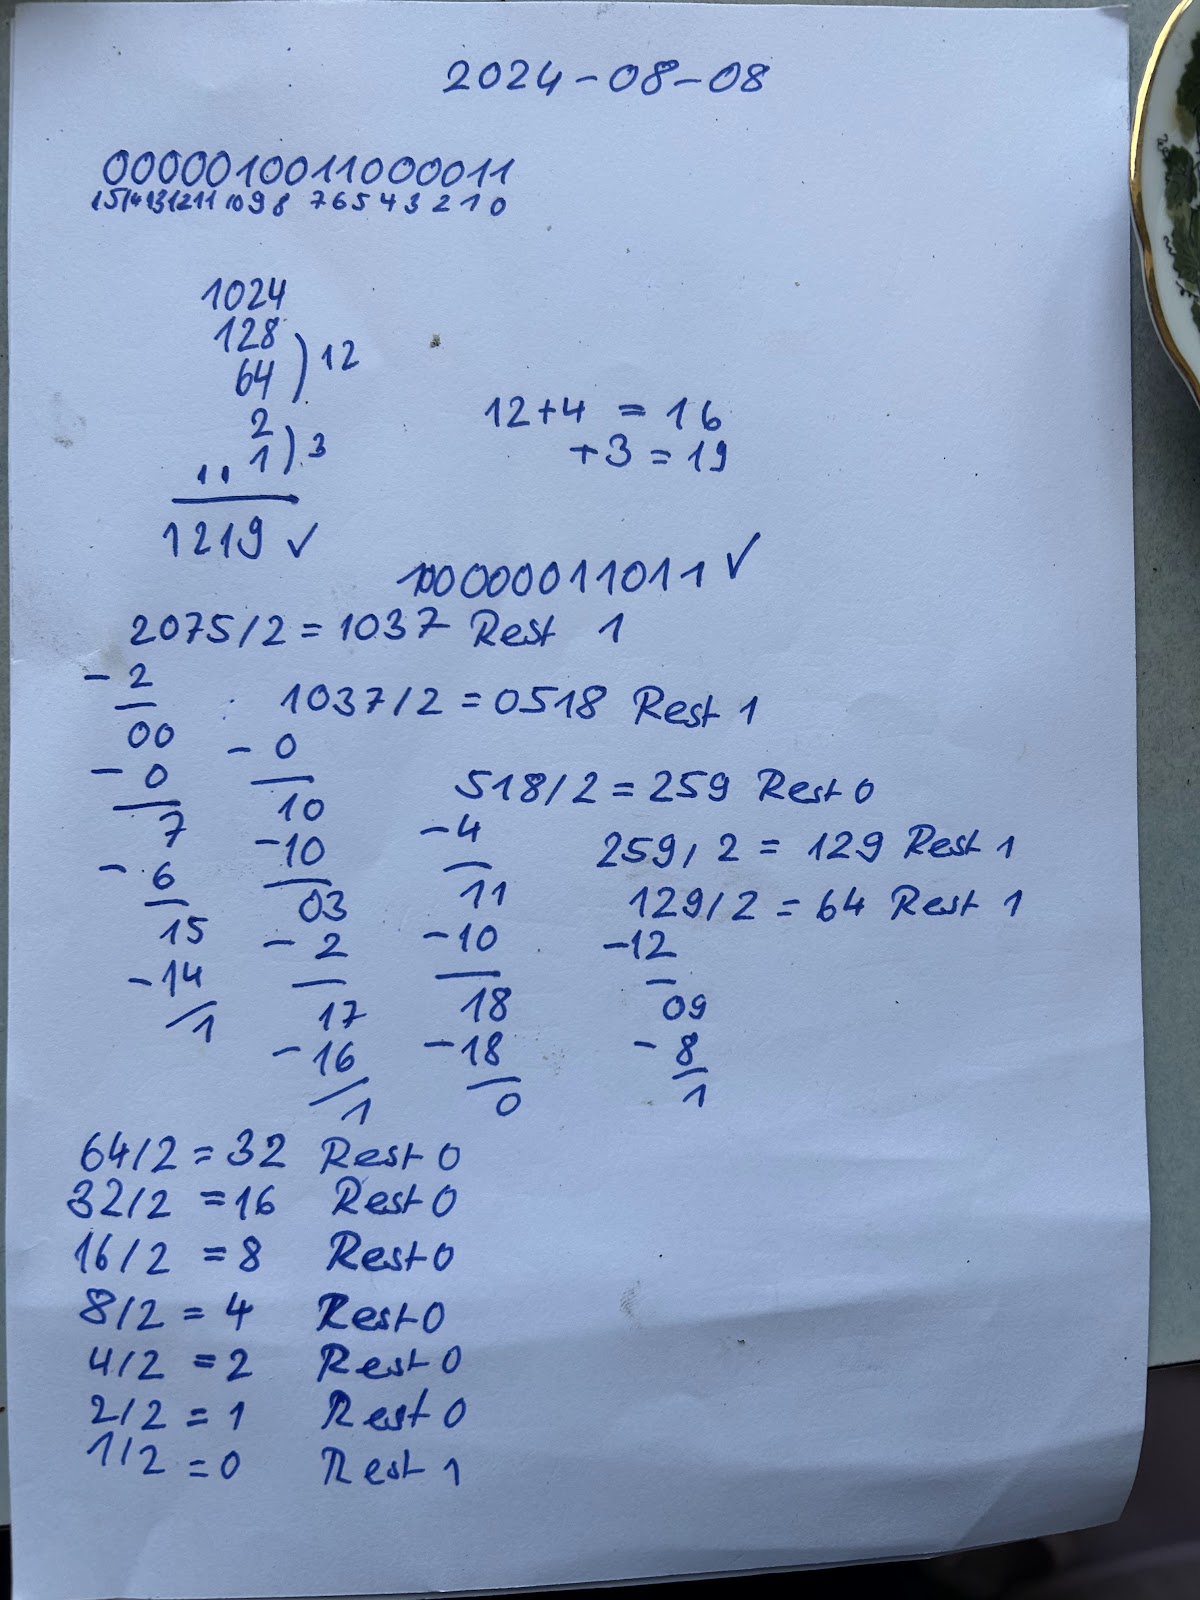 2024-08-08
0000010011000011
1514131211 10 9 8 7 6 5 4 3 2 1 0
1024
128
64 ) 12
2
1 ) 3
1219 ✓
12+4 = 16
+3 = 19
100000011011 ✓
2075/2 = 1037 Rest 1
- 2
00
- 0
7
- 6
15
- 14
1
1037/2 = 0518 Rest 1
- 0
10
- 10
03
- 2
17
- 16
1
518/2 = 259 Rest 0
- 4
11
- 10
18
- 18
0
259/2 = 129 Rest 1
129/2 = 64 Rest 1
- 12
09
- 8
1
64/2 = 32 Rest 0
32/2 = 16 Rest 0
16/2 = 8 Rest 0
8/2 = 4 Rest 0
4/2 = 2 Rest 0
2/2 = 1 Rest 0
1/2 = 0 Rest 1